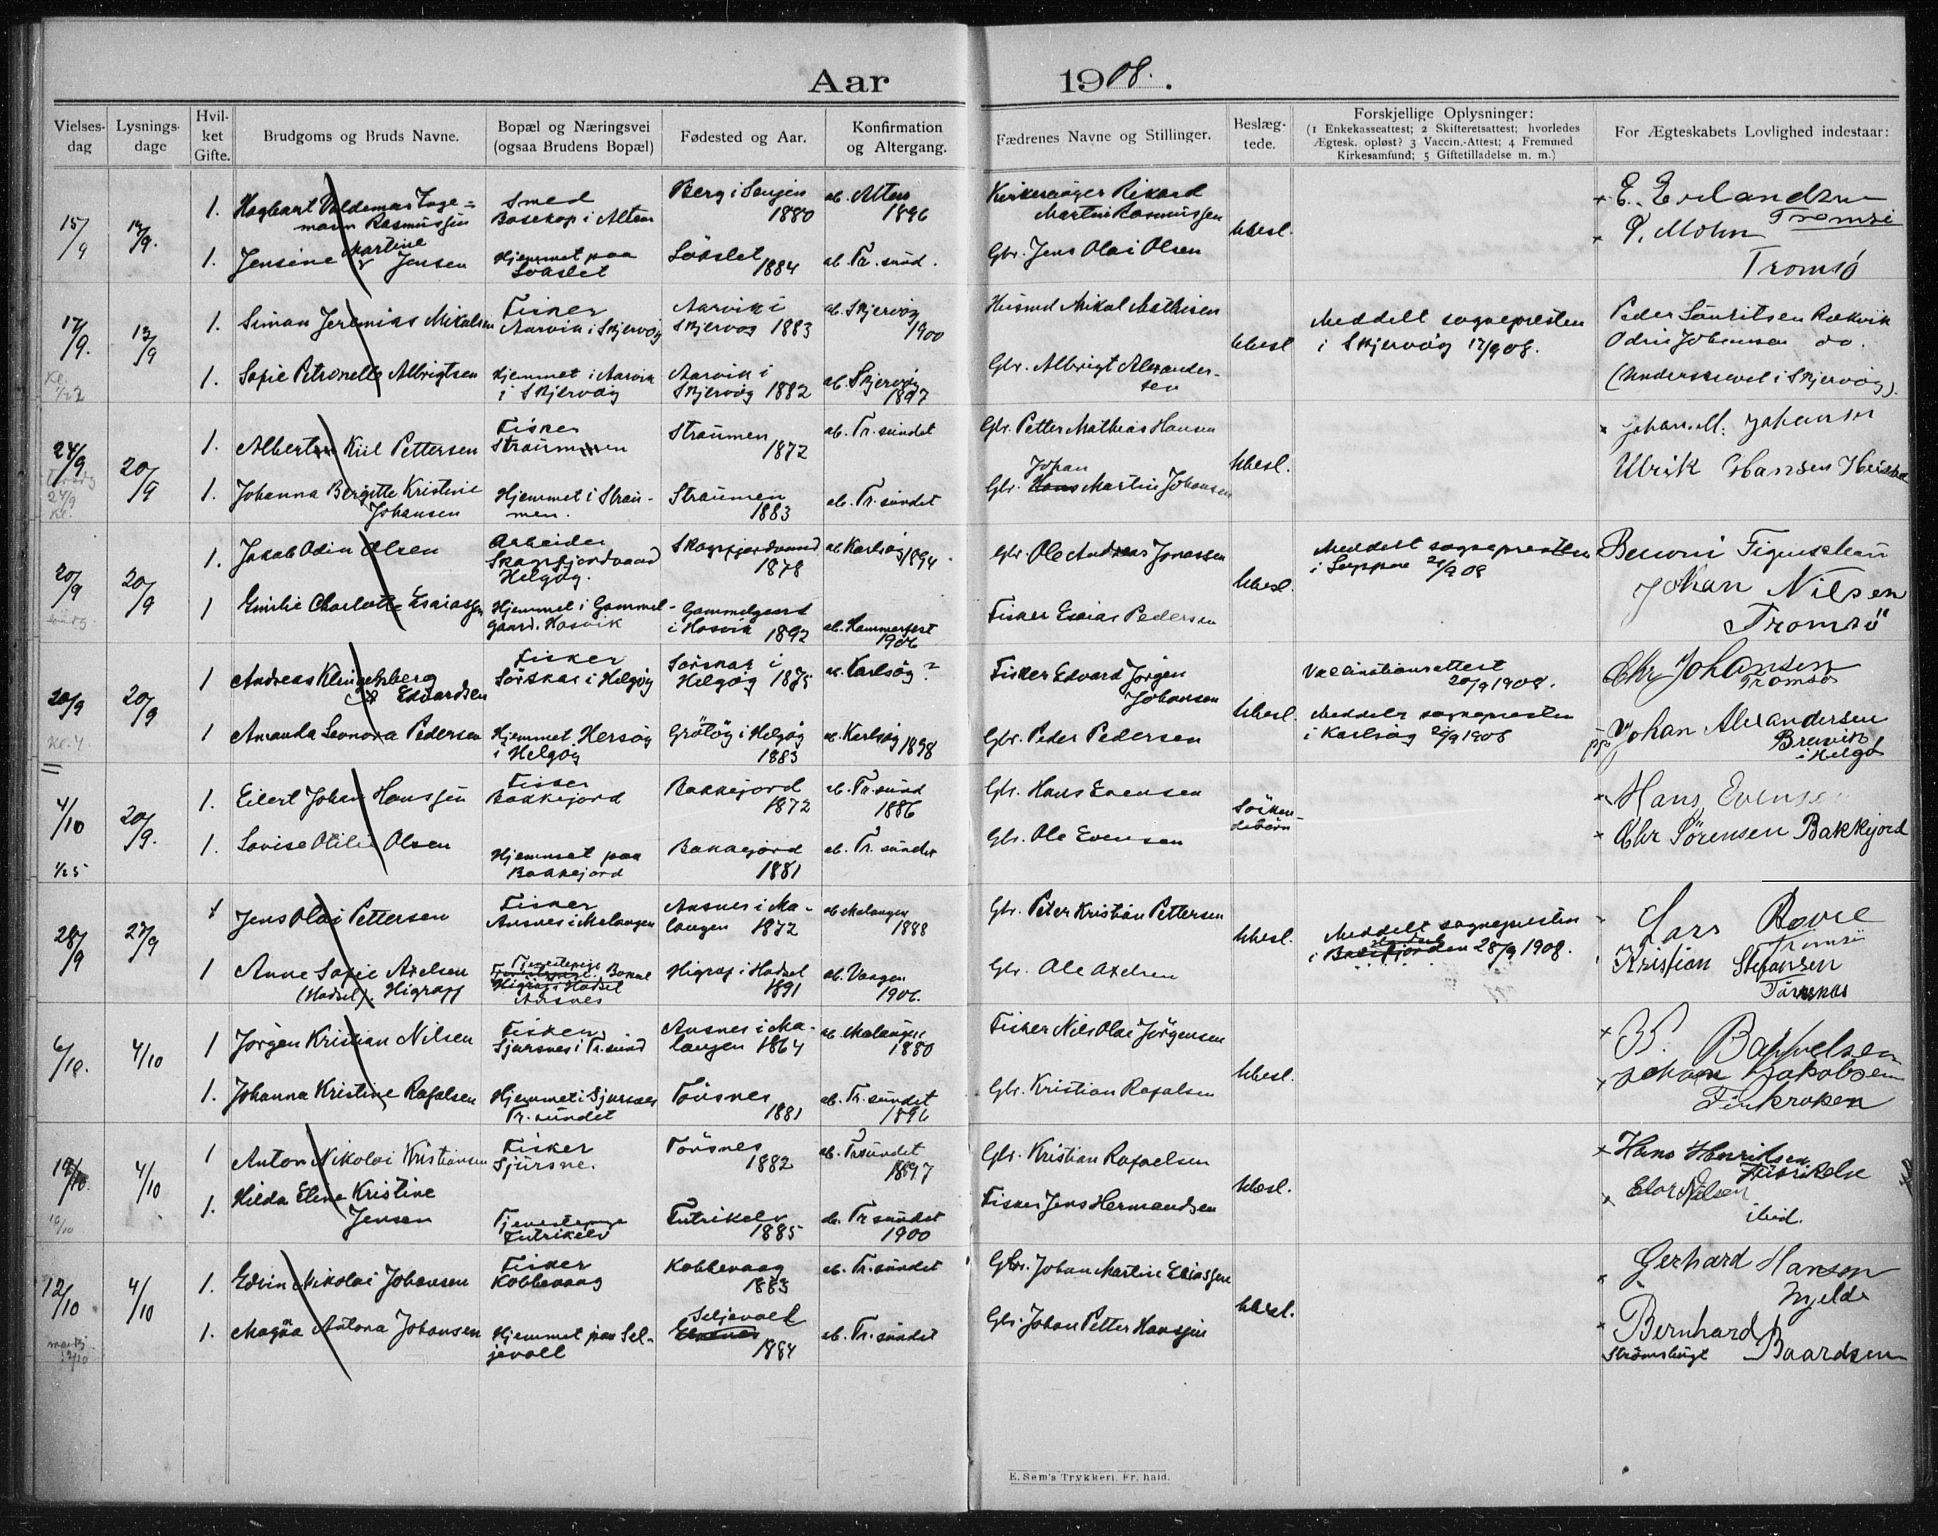 Aar 1908.
Vielses-dag
Lysnings-dage
Hvil-ket Gifte.
Brudgoms og Bruds Navne.
Bopæl og Næringsvei (ogsaa Brudens Bopæl)
Fødested og Aar.
Konfirmation og Altergang.
Fædrenes Navne og Stillinger.
Beslæg-tede.
Forskjellige Oplysninger: (1 Enkekasseattest; 2 Skifteretsattest; hvorledes Ægtesk. opløst? 3 Vaccin.-Attest; 4 Fremmed Kirkesamfund; 5 Giftetilladelse m. m.)
For Ægteskabets Lovlighed indestaar:
15/9 13/9. 1. Hagbart Valdemar Inge=
mann Rasmussen
Smed
Bosekop i Alten
Berg i Senjen
1880
ab. Alten
1896
Kirkesanger Rikard
Martin Rasmussen
Ubesl.
E. Erlandsen
Tromsø
1. Jensine Martine Jensen
Hjemmet paa
Løkslet
Løkslet
1884
ab. Tr.sund.
Gbr. Jens Olai Olsen
P. Mohn
Tromsö
17/9. 13/9 1. Simon Jeremias Mikalsen
Fisker
Aarvik i Skjervøy
Aarvik i
Skjervøy 1883
ab. Skjervøy
1900
Husmd Mikal Mathisen
Ubesl
Meddelt sognepresten
i Skjervøy 17/9 08.
Peder Lauritsen Rækvik
Odin Johansen do.
1. Sofie Petronelle Albrigtsen
Hjemmet i Aarvik
i Skjervøy
Aarvik i
Skjervøy 1882
ab. Skjervøy
1897
Gbr. Albrigt Alexander-
sen
(Underskrevet i Skjervøy).
24/9 20/9 1. Albert Kiil Pettersen
Fisker
Straumen
Straumen
1872
ab. Tr.sundet
Gbr. Petter Mathias Hansen
Ubesl.
Johan M. Johansen
1. Johanna Bergitte Kristine
Johansen
Hjemmet i Strau-
men.
Straumen
1883
ab. Tr.sundet
Gbr. Johan Martin Johansen
Ulrik Hansen
20/9 20/9 1. Jakob Odin Olsen
Arbeider
Skogsfjordvand
Helgøy.
Skogsfjordvand
1878
ab. Karlsøy 1894
Gbr. Ole Andreas Jonassen
Ubesl.
Meddelt sognepresten
i Loppen 21/9 08
Benoni Figenschau
1 Emilie Charlotte Esaiassen
Hjemmet i Gammel-
gaard. Hasvik
Gammelgaard
i Hasvik 1892
ab. Hammerfest
1906
Fisker Esaias Pedersen
Johan Nilsen
Tromsö
20/9 20/9 1 Andreas Klingenberg
Edvardsen
Fisker
Sørskar i Helgøy
Sørskar i
Helgøy 1875
ab. Karlsøy?
Fisker Edvard Jørgen
Johansen
Ubesl.
Vaccinationsattest
20/9 1908.
Chr Johansen
Tromsø
1 Amanda Leonora Pedersen
Hjemmet Hersøy
i Helgøy
Grøtøy i Helgøy
1883
ab. Karlsøy 1898
Gbr. Peder Pedersen
Meddelt sognepresten
i Karlsøy 20/9 1908
Johan Alexandersen
Brevik
i Helgø
4/10 20/9. 1. Eilert Johan Hanssen
Fisker
Bakkejord
Bakkejord
1872
ab. Tr.sund
1886
Gbr. Hans Evensen
Søsken-
debørn
Hans Evensen
1. Lovise Otilie Olsen
Hjemmet paa
Bakkejord
Bakkejord
1881
ab. Tr. sundet
Gbr. Ole Evensen
Chr Sørensen Bakkejord
28/9 27/9 1 Jens Olai Pettersen
Fisker
Ansnes i Malangen
Ansnes i Ma-
langen 1872
ab Malangen
1888
Gbr. Peter Kristian Pettersen
Ubesl.
Meddelt sognepresten
i Balsfjorden 28/9 1908.
Lars
Tromsö
1 Anne Sofie Axelsen
(Hadsel). Higrapf
Tjenestepige
Higrapf i Hadsel
Ansnes
Higrapf i Hadsel
1891
ab. Vaagan
1906.
Gbr. Ole Axelsen
Kristian Stefansen
6/10. 4/10 1 Jørgen Kristian Nilsen
Fisker
Sjursnes i Tr.sund
Ansnes i Ma-
langen 1864
ab. Malangen
1880
Fisker Nils Olai Jørgensen
Ubesl.
1. Johanna Kristine Rafalsen
Hjemmet i Sjursnes
Tr.sundet
Tønsnes
1881
ab. Tr.sundet
1896
Gbr. Kristian Rafalsen
Johan Jakobsen
Finkroken
4/10 1 Anton Nikolai Kristiansen
Fisker
Sjursne.
Tønsnes
1882
ab. Trsundet
1897
Gbr. Kristian Rafaelsen
Ubesl.
Hans Henriksen
Futrikelv
1. Hilda Elene Kristine
Jensen
Tjenestepige
Futrikelv
Futrikelv
1885
ab. Tr sundet
1900
Fisker Jens Hermandsen
Nilsen
ibid.
12/10 4/10 1. Edvin Nikolai Johansen
Fisker
Kobbevaag
Kobbevaag
1883
ab. Tr.sundet
Gbr. Johan Martin Eliassen
Ubesl.
Gerhard Hanson
1. Magda Antona Johansen
Hjemmet paa Sel-
jevoll
Seljevoll
1884
ab. Tr.sundet
Gbr. Johan Petter Hanssen
Bernhard
Strømsbugt Baardsen
E. Sem's Trykkeri, Fr. hald.